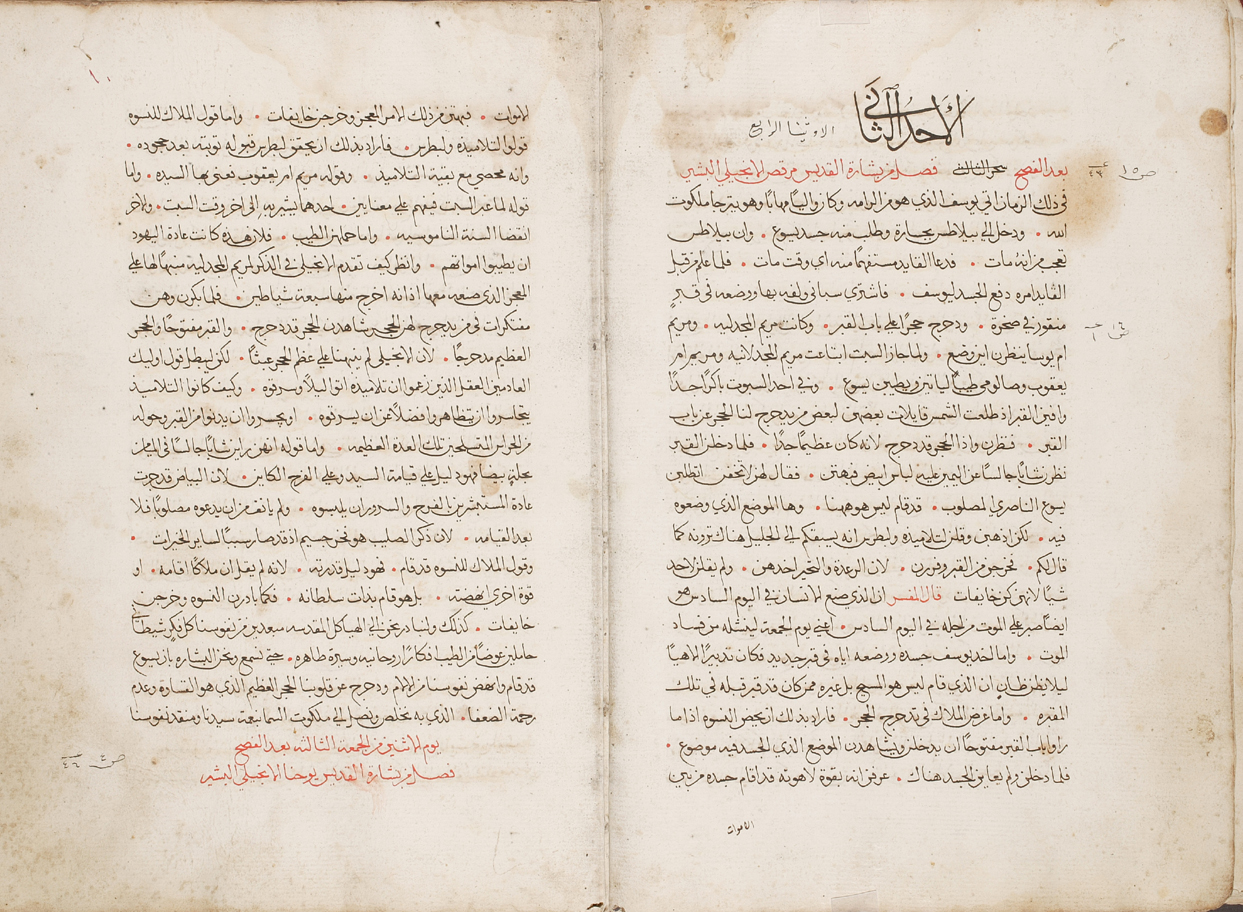 الأحد الثاني
الاوثينا الرابع
بعد الفصح سحر الثالث فصل من بشارة القديس مرقص الانجيلي البشير
في ذلك الزمان اتى يوسف الذي هو من الرامه وكان واليًا مهابًا وهو يترجا ملكوت
الله • ودخل الى بيلاطس بجسارة وطلب منه جسد يسوع • وان بيلاطس
تعجب من انه مات • فدعا القايد مستفهمًا منه اي وقت مات • فلما علم من قبل
القايد امره دفع الجسد ليوسف • فاشترى سباني ولفه بها ووضعه في قبرٍ
منقور في صخرة • ودحرج حجرًا على باب القبر • وكانت مريم المجدليه • ومريم
ام يوسا ينظرن اين وضع • ولما جاز السبت ابتاعت مريم المجدلانيه ومريم ام
يعقوب وصالومي طيبًا لياتين ويطيبن يسوع • وفي احد السبوت باكرًا جدًا
وافين القبر اذ طلعت الشمس قايلات بعضهن لبعض من يدحرج لنا الحجر عن باب
القبر • فنظرن واذا الحجر قد دحرج لانه كان عظيمًا جدًا • فلما دخلن القبر
نظرن شابًا جالسًا عن اليمين عليه لباس ابيض فبهتن • فقال لهن لا تخفن اتطلبن
يسوع الناصري المصلوب • قد قام ليس هو ههنا • وها الموضع الذي وضعوه
فيه • لكن اذهبن وقلن لتلاميذه ولبطرس انه يسبقكم الى الجليل هناك ترونه كما
قال لكم • فخرجن من القبر وفررن • لان الرعدة والتحير اخذهن • ولم يقلن لاحد
شيًا لانهن كن خايفات قال المفسر ان الذي صنع الانسان في اليوم السادس هو
ايضًا صبر على الموت من اجله في اليوم السادس • اعني يوم الجمعة لينشله من فساد
الموت • واما اخذ يوسف جسده ووضعه اياه في قبر جديد فكان تدبيرًا الاهيًا
ليلا يظن ظان ان الذي قام ليس هو المسيح بل غيره ممن كان قد قبر قبله في تلك
المقبره • واما عرض الملاك في تدحرج الحجر • فاراد بذلك ان يحض النسوه اذا ما
راوا باب القبر مفتوحًا ان يدخلن ويشاهدن الموضع الذي الجسد فيه موضوع •
فلما دخلن ولم يعاين الجسد هناك • عرفن انه بقوة لاهوته قد اقام جسده من بين
الاموات
ص ١٥
ع ٤٣
ص ١٦
ح ١
١٠
الاموات • فبهتن من ذلك الامر المعجز وخرجن خايفات • واما قول الملاك للنسوه
قولوا لتلاميذه ولبطرس • فاراد بذلك ان يحقق لبطرس قبوله توبته بعد جحوده •
وانه محصي مع بقية التلاميذ • وقوله مريم ام يعقوب فعنى بها السيده • واما
قوله لما عبر السبت فيفهم على معنايين • احدهما يشير به الى اخر وقت السبت • والاخر
انقضا السنة الناموسيه • واما حملهن الطيب • فلان هذه كانت عادة اليهود
ان يطيبوا امواتهم • وانظر كيف تقدم الانجيلي في الذكر لمريم المجدليه منبهًا على
المعجز الذي صنعه معها اذ انه اخرج منها سبعة شياطين • فلما بكرن وهن
مفتكرات في من يدحرج لهن الحجر شاهدن الحجر قد دحرج • والقبر مفتوحًا والحجر
العظيم مدحرجًا • لان الانجيلي لم ينبهنا على عظم الحجر عبثًا • لكن ليبطل قول اوليك
العادمين العقل الذين زعموا ان تلاميذه اتوا ليلًا وسرقوه • وكيف كانوا التلاميذ
يتجاسروا ان يتظاهروا فضلًا عن ان يسرقوه • او يجسروا ان يدنوا من القبر وحوله
من الحراس المتسلحين تلك العدة العظيمه • واما قوله انهن راين شابًا جالسًا في الميامن
بحلة بيضا فهو دليل على قيامة السيد وعلى الفرح الكاين • لان البياض قد جرت
عادة المستبشرين بالفرح والسرور ان يلبسوه • ولم يانف من ان يدعوه مصلوبًا فلا
بعد القيامه • لان ذكر الصليب هو فخر جسيم اذ قد صار سببًا لساير الخيرات •
وقول الملاك للنسوه قد قام • فهو دليل قدرته • لانه لم يقل ان ملاكًا اقامه • او
قوة اخرى انهضته • بل هو قام بذات سلطانه • فكما بادرن النسوه وخرجن
خايفات • كذلك ولنبادر نحن الى الهياكل المقدسه مبعدين من نفوسنا كل فكر شيطاني
حاملين عوضًا من الطيب افكارًا روحانيه وسيرة طاهره • حتى نسمع ونحن البشاره بان يسوع
قد قام وانهض نفوسنا من الالام ودحرج عن قلوبنا الحجر العظيم الذي هو القساوة وعدم
رحمة الضعفا • الذي به نخلص ونصل الى ملكوت السما بنعمة سيدنا ومنقذ نفوسنا
يوم الاثنين من الجمعة الثالثه بعد الفصح
فصل من بشارة القديس يوحنا الانجيلي البشير